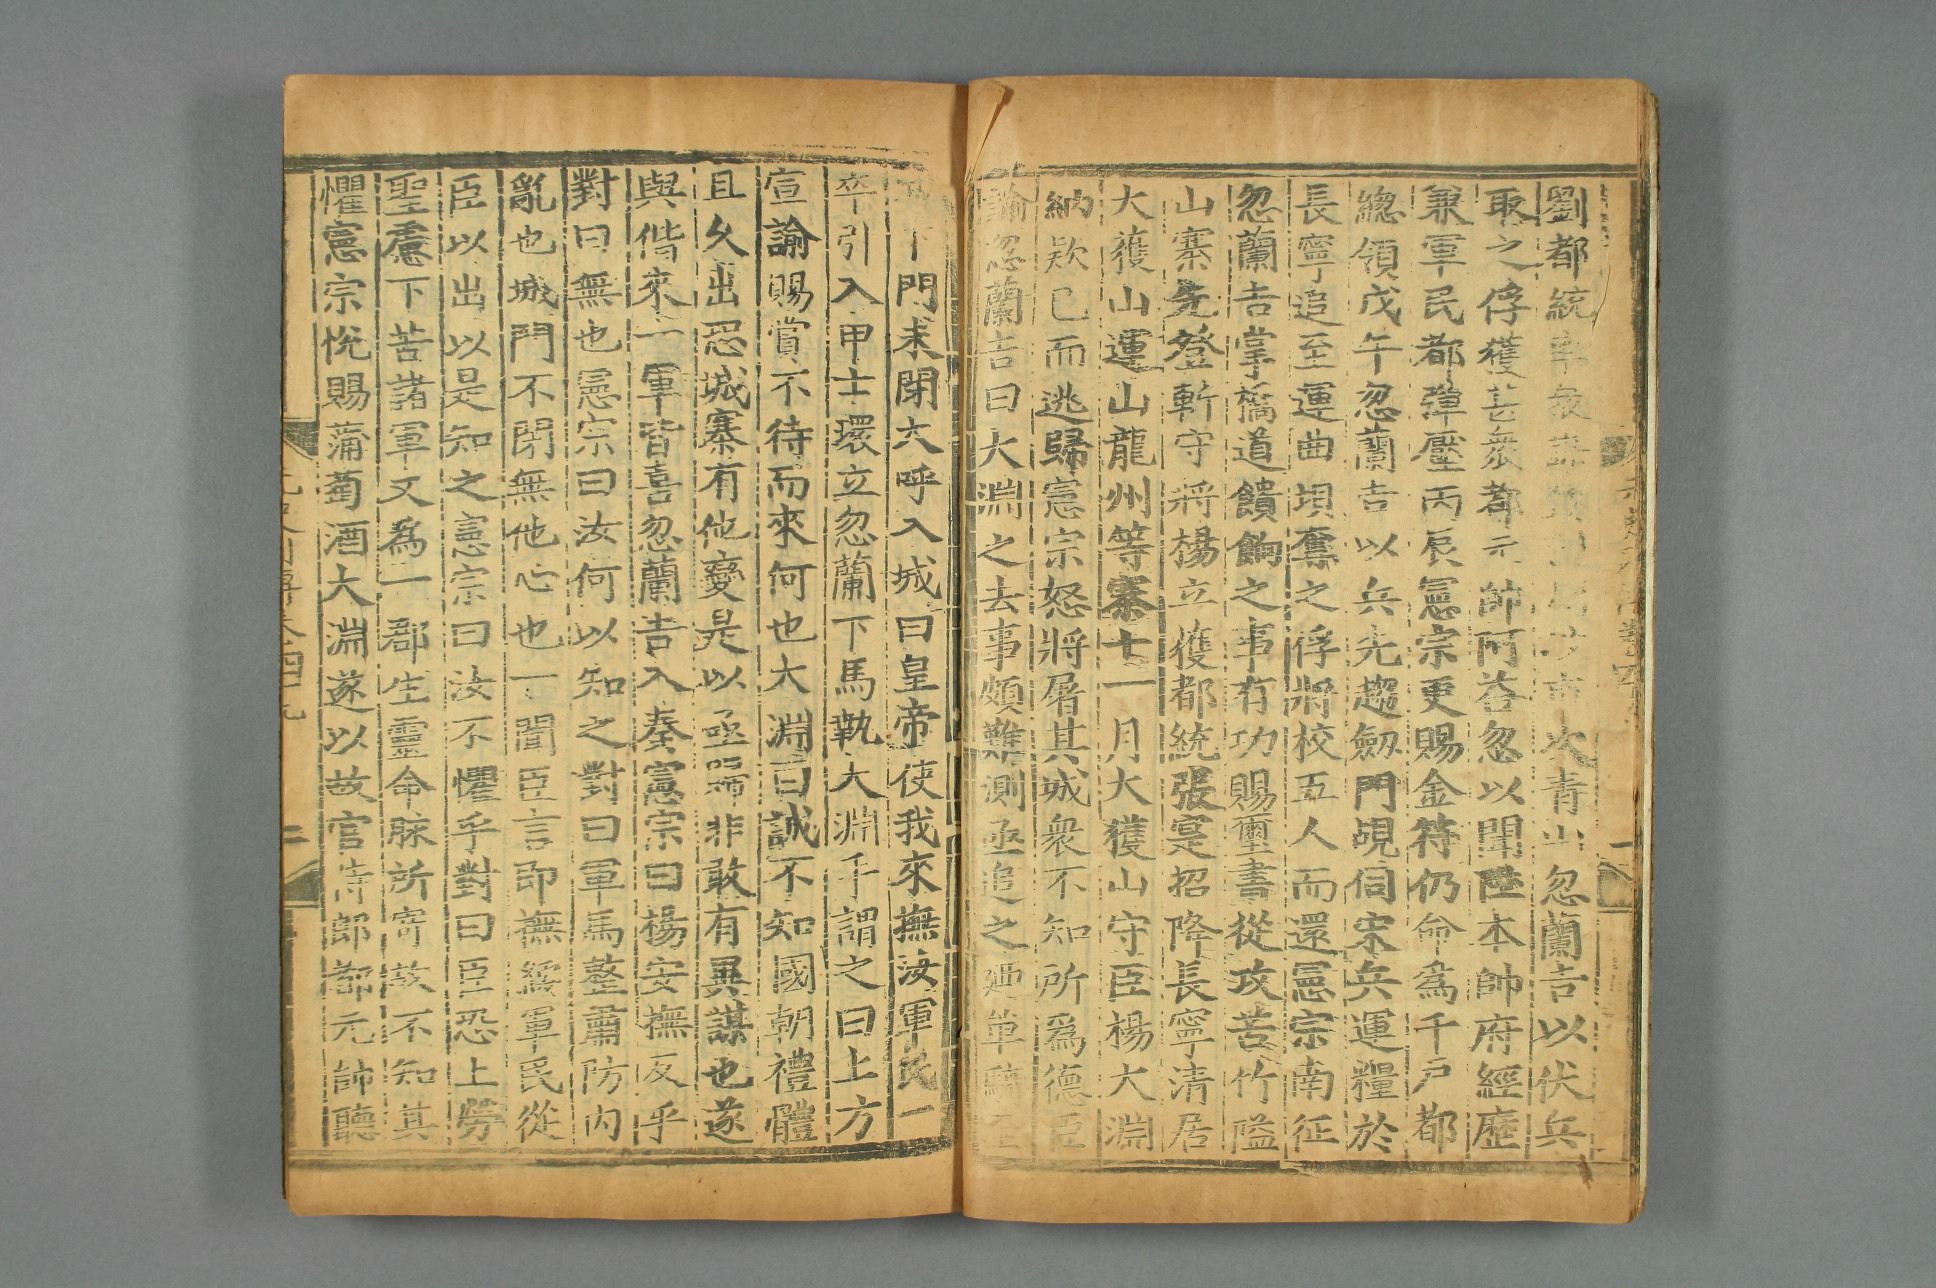 劉都統率衆次青山忽蘭吉以伏兵
取之俘獲甚衆都元帥阿荅忽以聞陞本帥府經歷
兼軍民都彈壓丙辰憲宗更賜金符仍命為千戶都
總領戊午忽蘭吉以兵先趨劒門覘伺宋兵運糧於
長寧追至運曲垻奪之俘將校五人而還憲宗南征
忽蘭吉掌橋道饋餉之事有功賜璽書從攻苦竹隘
山寨先登斬守將楊立獲都統張寔招降長寧清居
大獲山運山龍州等寨十一月大獲山守臣楊大淵
納欵已而逃歸憲宗怒將屠其城衆不知所爲德臣
諭忽蘭吉曰大淵之去事頗難測亟追之廼單騎至
下門未閉大呼入城曰皇帝使我來撫汝軍民一
卒引入甲士環立忽蘭下馬執大淵手謂之曰上方
宣諭賜賞不待而來何也大淵曰誠不知國朝禮體
且久出恐城寨有他變是以亟歸非敢有異謀也遂
與偕來一軍皆喜忽蘭吉入奏憲宗曰楊安撫反乎
對曰無也憲宗曰汝何以知之對曰軍馬整肅防内
亂也城門不閉無他心也一聞臣言即撫綏軍民從
臣以出以是知之憲宗曰汝不懼乎對曰臣恐上勞
聖慮下苦諸軍又爲一郡生靈命脉所寄故不知其
懼憲宗悅賜蒲萄酒大淵遂以故官侍郎都元帥聽
二